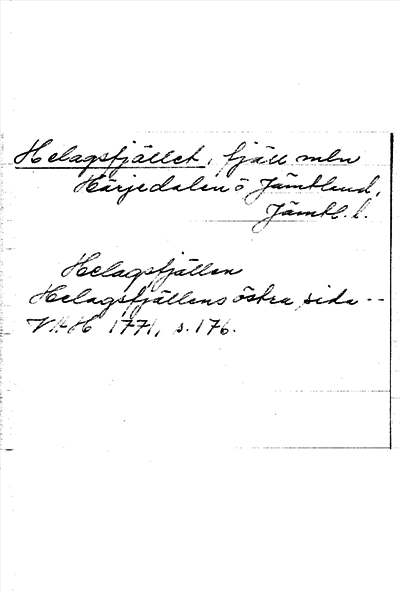 Helagsfjället, fjäll mln
Härjedalen o Jämtland,
Jämtl. l.
Helagsfjällen
Helagsfjällens östra sida --
VAH 1771, s. 176.